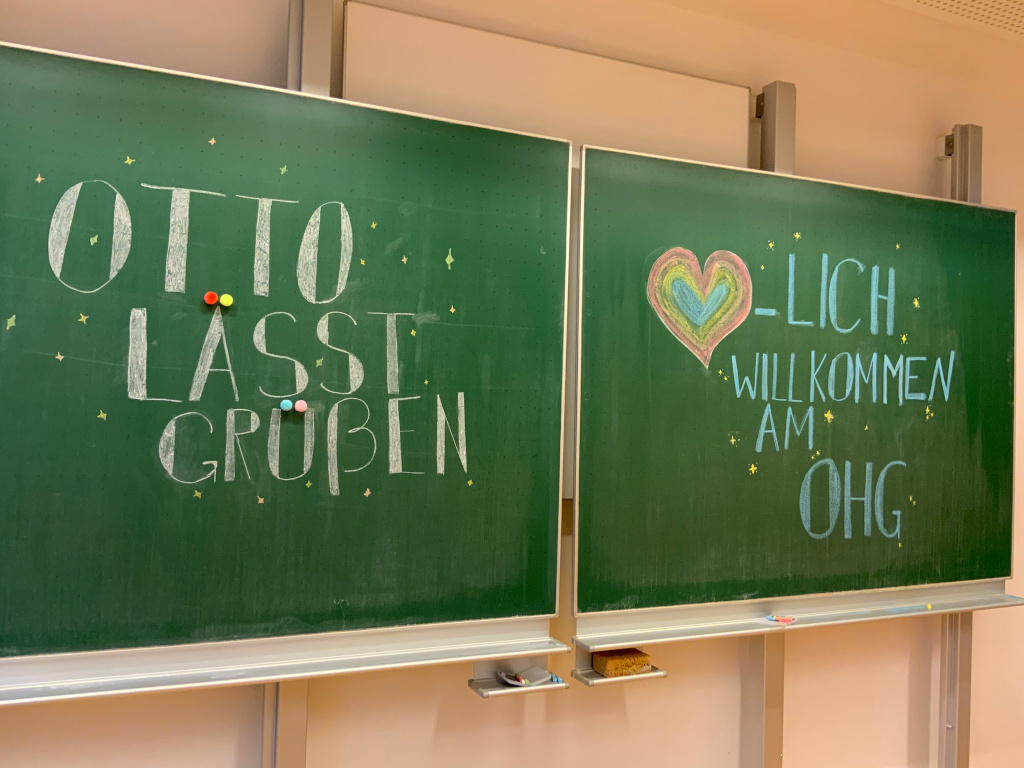 OTTO
LÄSST
GRÜßEN
-LICH
WILLKOMMEN
AM
OHG